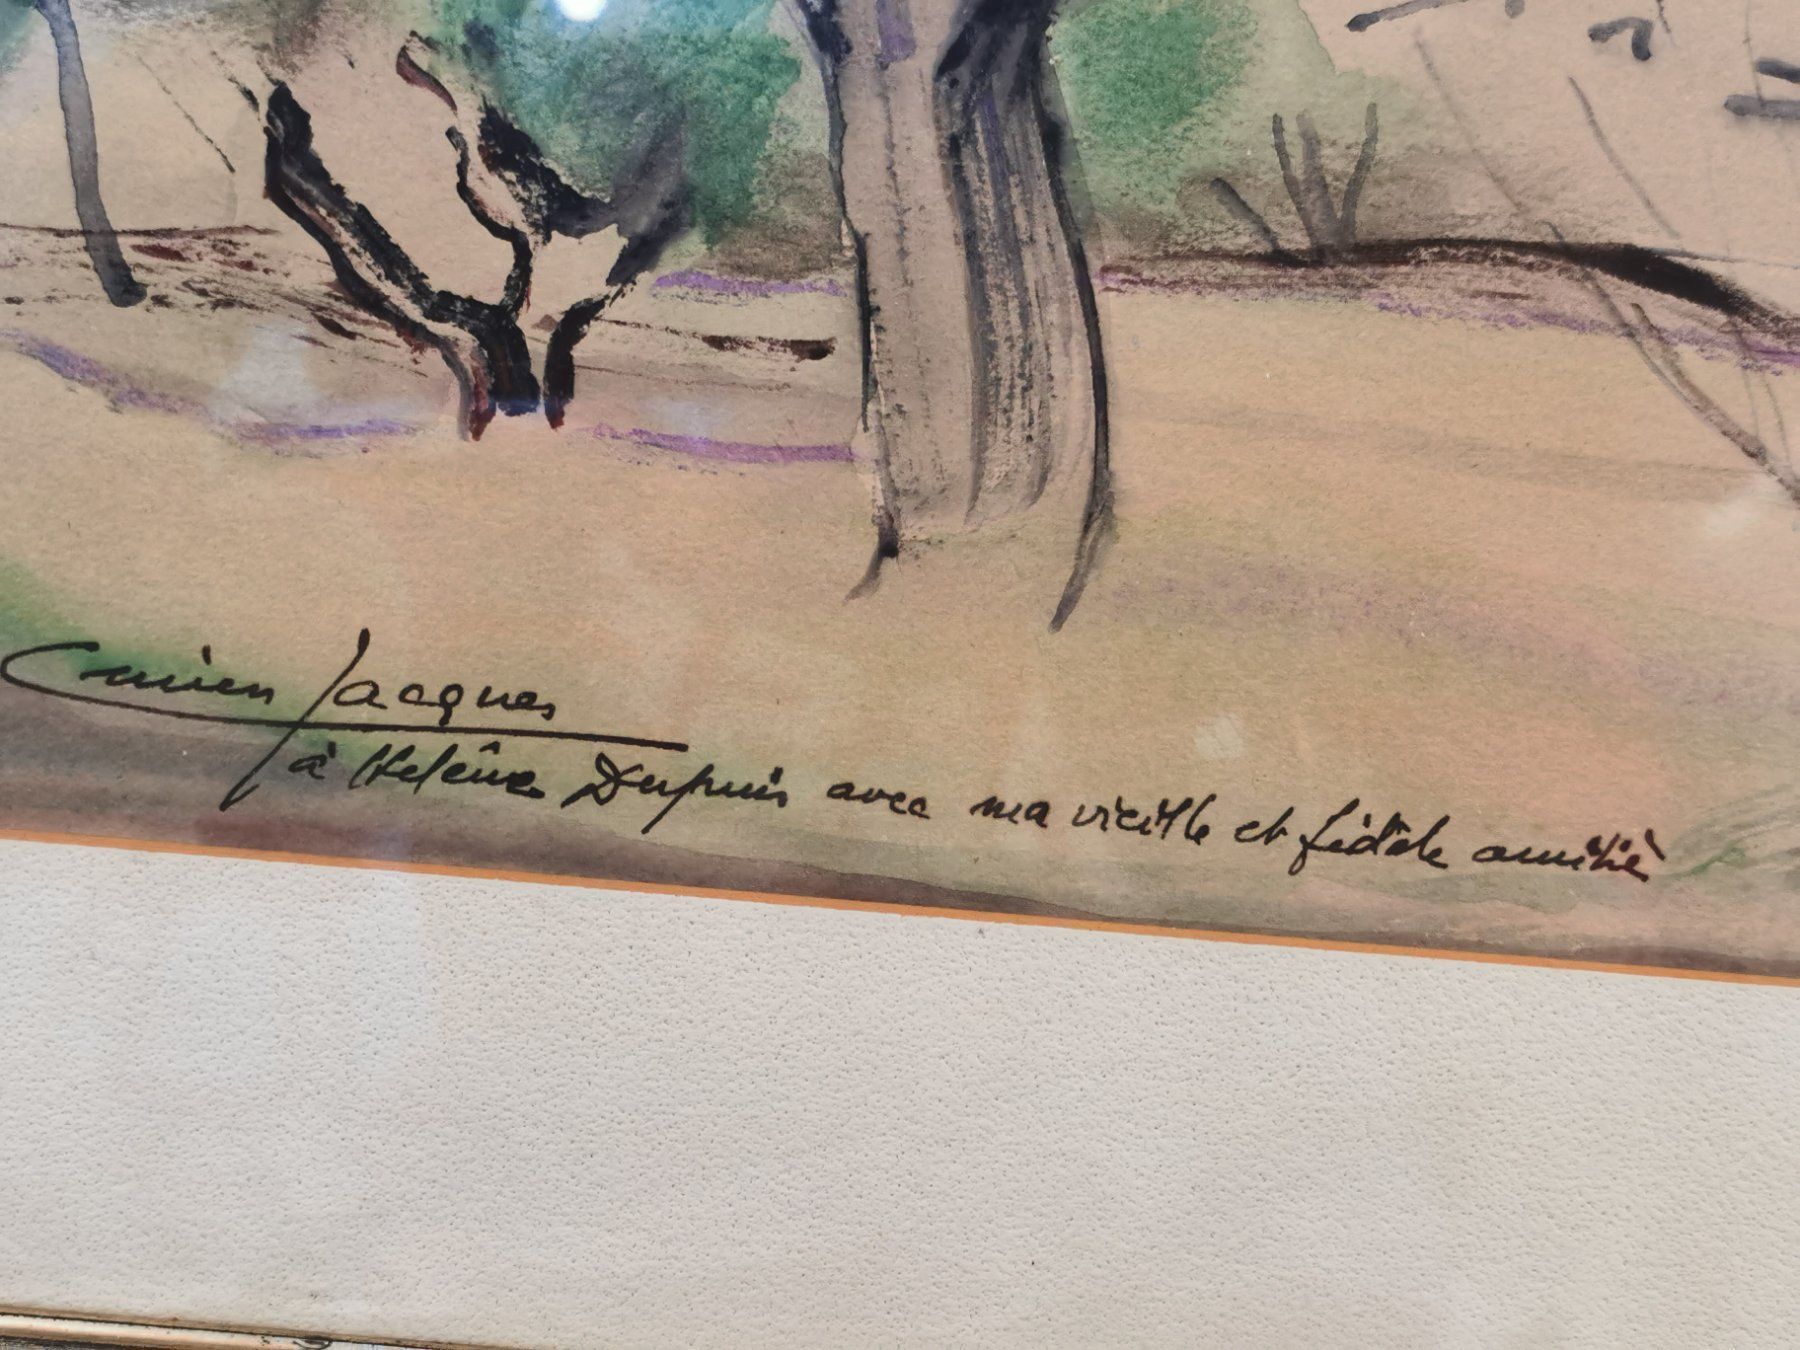 Lucien Jacques
à Helène Dupuis avec ma vieille et fidèle amitié